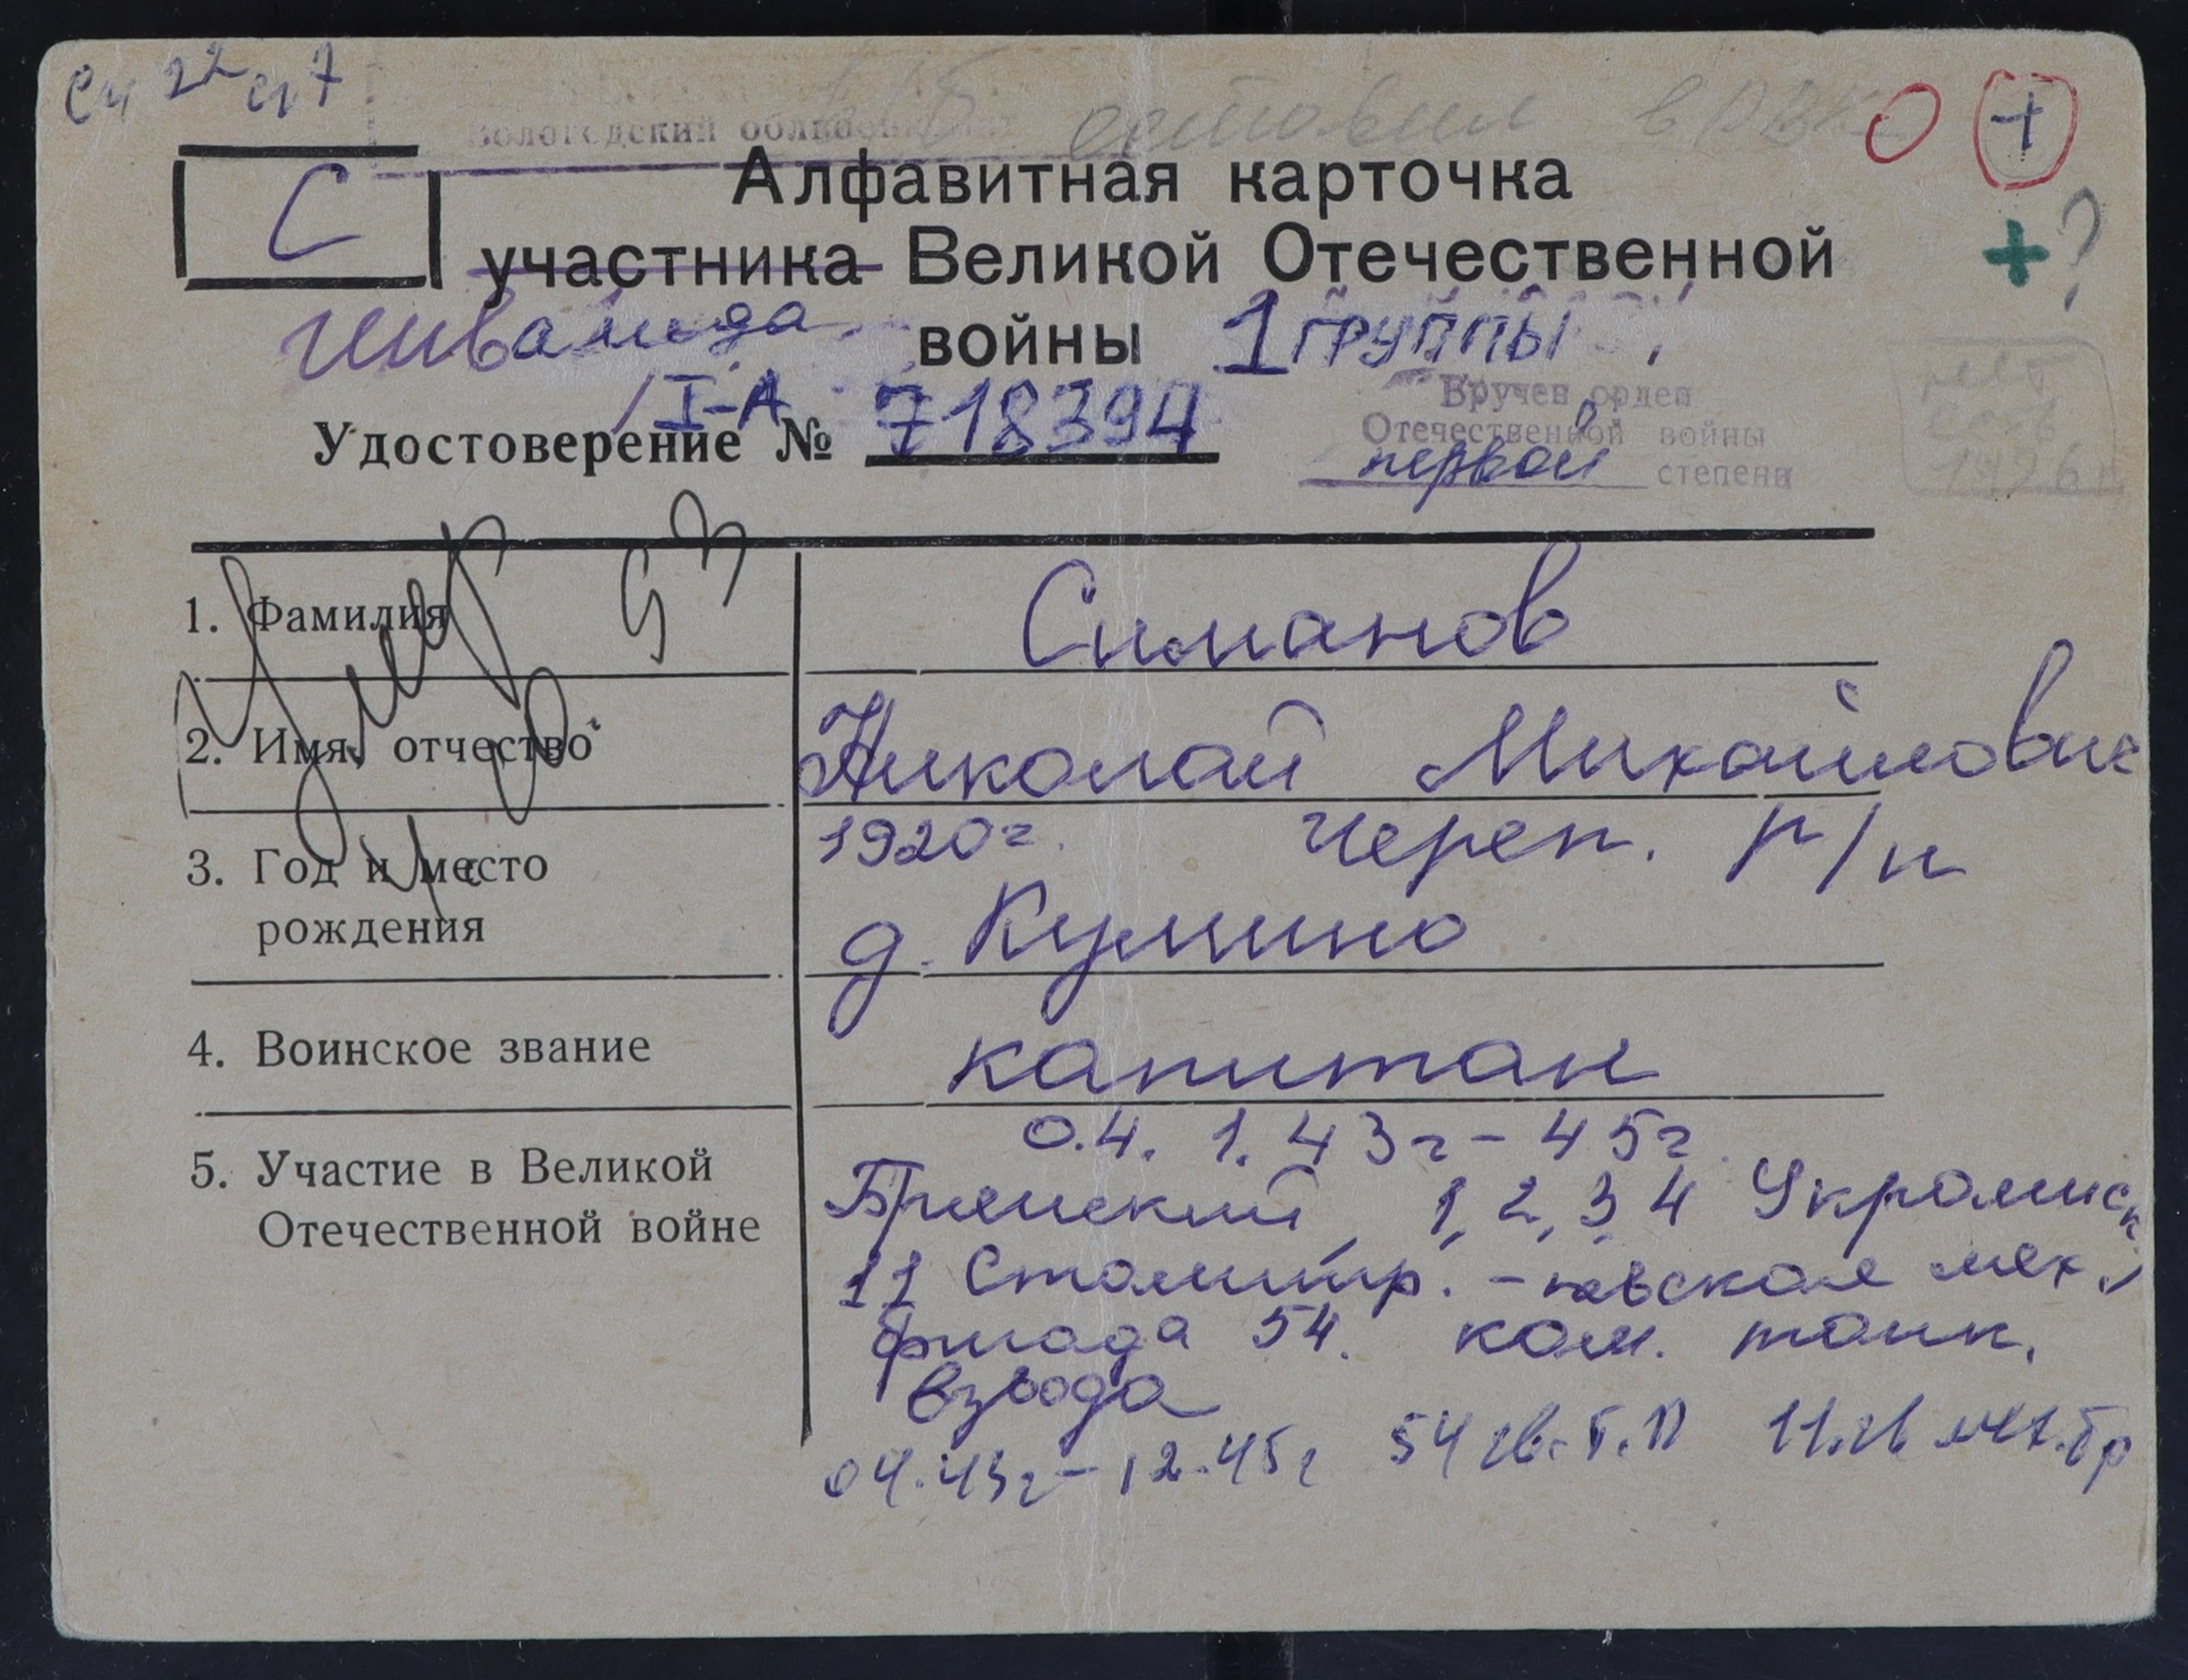 Вологодский
оставил в РВК
С
Алфавитная карточка
участника Великой Отечественной
инвалида войны 1 группы
I-А
Удостоверение № 718394
Вручен орден
Отечественной войны
первой степени
Умер
1. Фамилия Симанов
2. Имя, отчество Николай Михайлович
3. Год и место рождения 1920г. Череп. р/н
д. Кумино
4. Воинское звание капитан
5. Участие в Великой Отечественной войне 04. 1. 43г - 45г.
Брянский, 1, 2, 3 4 Украинск
11 мех.
бригада 54. ком. танк.
взвода
04.43г - 12.45г 54 гв. т. п 11.гв мех.бр